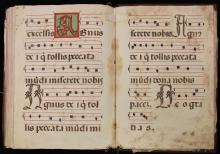 AGnus
excelsis
de i q̃ tollis peccata
mũdi miserere nobis
Agnus de i q̃ tol
lis peccata mũdi mi
serere nobis Agn9
de i q̃ tollis peccata
mũdi dona nobis
pacẽ. Deo gra
tias.